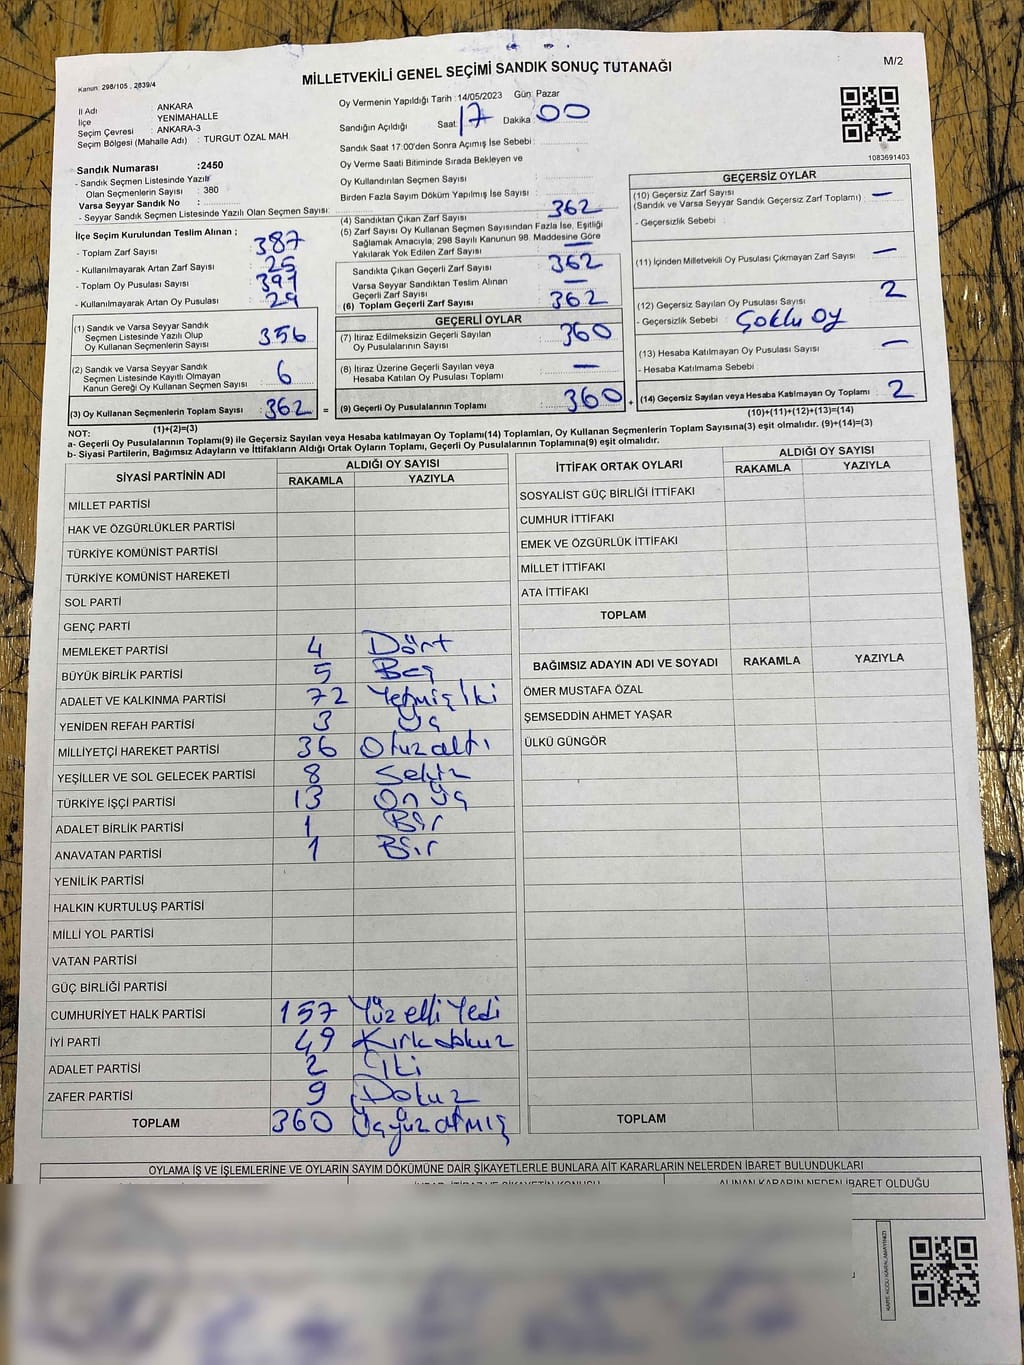 M/2
Kanun: 298/105 , 2839/4
MİLLETVEKİLİ GENEL SEÇİMİ SANDIK SONUÇ TUTANAĞI
İl Adı : ANKARA
İlçe : YENİMAHALLE
Seçim Çevresi : ANKARA-3
Seçim Bölgesi (Mahalle Adı) : TURGUT ÖZAL MAH.
Sandık Numarası :2450
- Sandık Seçmen Listesinde Yazılı
Olan Seçmenlerin Sayısı : 380
Varsa Seyyar Sandık No :
- Seyyar Sandık Seçmen Listesinde Yazılı Olan Seçmen Sayısı:
İlçe Seçim Kurulundan Teslim Alınan ;
- Toplam Zarf Sayısı : 387
- Kullanılmayarak Artan Zarf Sayısı : 25
- Toplam Oy Pusulası Sayısı : 391
- Kullanılmayarak Artan Oy Pusulası : 29
(1) Sandık ve Varsa Seyyar Sandık
Seçmen Listesinde Yazılı Olup
Oy Kullanan Seçmenlerin Sayısı : 356
(2) Sandık ve Varsa Seyyar Sandık
Seçmen Listesinde Kayıtlı Olmayan
Kanun Gereği Oy Kullanan Seçmen Sayısı : 6
(3) Oy Kullanan Seçmenlerin Toplam Sayısı : 362 =
(1)+(2)=(3)
Oy Vermenin Yapıldığı Tarih :14/05/2023 Gün: Pazar
Sandığın Açıldığı Saat: 17 Dakika : 00
Sandık Saat 17:00'den Sonra Açımış İse Sebebi :
Oy Verme Saati Bitiminde Sırada Bekleyen ve
Oy Kullandırılan Seçmen Sayısı :
Birden Fazla Sayım Döküm Yapılmış İse Sayısı :
(4) Sandıktan Çıkan Zarf Sayısı : 362
(5) Zarf Sayısı Oy Kullanan Seçmen Sayısından Fazla İse, Eşitliği
Sağlamak Amacıyla; 298 Sayılı Kanunun 98. Maddesine Göre
Yakılarak Yok Edilen Zarf Sayısı : —
Sandıkta Çıkan Geçerli Zarf Sayısı : 362
Varsa Seyyar Sandıktan Teslim Alınan
Geçerli Zarf Sayısı : —
(6) Toplam Geçerli Zarf Sayısı : 362
GEÇERLİ OYLAR
(7) İtiraz Edilmeksizin Geçerli Sayılan
Oy Pusulalarının Sayısı : 360
(8) İtiraz Üzerine Geçerli Sayılan veya
Hesaba Katılan Oy Pusulası Toplamı : —
(9) Geçerli Oy Pusulalarının Toplamı : 360 +
1083691403
GEÇERSİZ OYLAR
(10) Geçersiz Zarf Sayısı
(Sandık ve Varsa Seyyar Sandık Geçersiz Zarf Toplamı) : —
- Geçersizlik Sebebi :
(11) İçinden Milletvekili Oy Pusulası Çıkmayan Zarf Sayısı : —
(12) Geçersiz Sayılan Oy Pusulası Sayısı : 2
- Geçersizlik Sebebi : Çoklu oy
(13) Hesaba Katılmayan Oy Pusulası Sayısı : —
- Hesaba Katılmama Sebebi :
(14) Geçersiz Sayılan veya Hesaba Katılmayan Oy Toplamı : 2
(10)+(11)+(12)+(13)=(14)
NOT:
a- Geçerli Oy Pusulalarının Toplamı(9) ile Geçersiz Sayılan veya Hesaba katılmayan Oy Toplamı(14) Toplamları, Oy Kullanan Seçmenlerin Toplam Sayısına(3) eşit olmalıdır. (9)+(14)=(3)
b- Siyasi Partilerin, Bağımsız Adayların ve İttifakların Aldığı Ortak Oyların Toplamı, Geçerli Oy Pusulalarının Toplamına(9) eşit olmalıdır.
SİYASİ PARTİNİN ADI ALDIĞI OY SAYISI
RAKAMLA YAZIYLA
MİLLET PARTİSİ
HAK VE ÖZGÜRLÜKLER PARTİSİ
TÜRKİYE KOMÜNİST PARTİSİ
TÜRKİYE KOMÜNİST HAREKETİ
SOL PARTİ
GENÇ PARTİ
MEMLEKET PARTİSİ 4 Dört
BÜYÜK BİRLİK PARTİSİ 5 Beş
ADALET VE KALKINMA PARTİSİ 72 Yetmiş iki
YENİDEN REFAH PARTİSİ 3 Üç
MİLLİYETÇİ HAREKET PARTİSİ 36 Otuz altı
YEŞİLLER VE SOL GELECEK PARTİSİ 8 Sekiz
TÜRKİYE İŞÇİ PARTİSİ 13 On üç
ADALET BİRLİK PARTİSİ 1 Bir
ANAVATAN PARTİSİ 1 Bir
YENİLİK PARTİSİ
HALKIN KURTULUŞ PARTİSİ
MİLLİ YOL PARTİSİ
VATAN PARTİSİ
GÜÇ BİRLİĞİ PARTİSİ
CUMHURİYET HALK PARTİSİ 157 Yüz elli Yedi
İYİ PARTİ 49 Kırk dokuz
ADALET PARTİSİ 2 iki
ZAFER PARTİSİ 9 Dokuz
TOPLAM 360 Üçyüz atmış
İTTİFAK ORTAK OYLARI ALDIĞI OY SAYISI
RAKAMLA YAZIYLA
SOSYALİST GÜÇ BİRLİĞİ İTTİFAKI
CUMHUR İTTİFAKI
EMEK VE ÖZGÜRLÜK İTTİFAKI
MİLLET İTTİFAKI
ATA İTTİFAKI
TOPLAM
BAĞIMSIZ ADAYIN ADI VE SOYADI RAKAMLA YAZIYLA
ÖMER MUSTAFA ÖZAL
ŞEMSEDDİN AHMET YAŞAR
ÜLKÜ GÜNGÖR
TOPLAM
OYLAMA İŞ VE İŞLEMLERİNE VE OYLARIN SAYIM DÖKÜMÜNE DAİR ŞİKAYETLERLE BUNLARA AİT KARARLARIN NELERDEN İBARET BULUNDUKLARI
ALINAN KARARIN NEDEN İBARET OLDUĞU